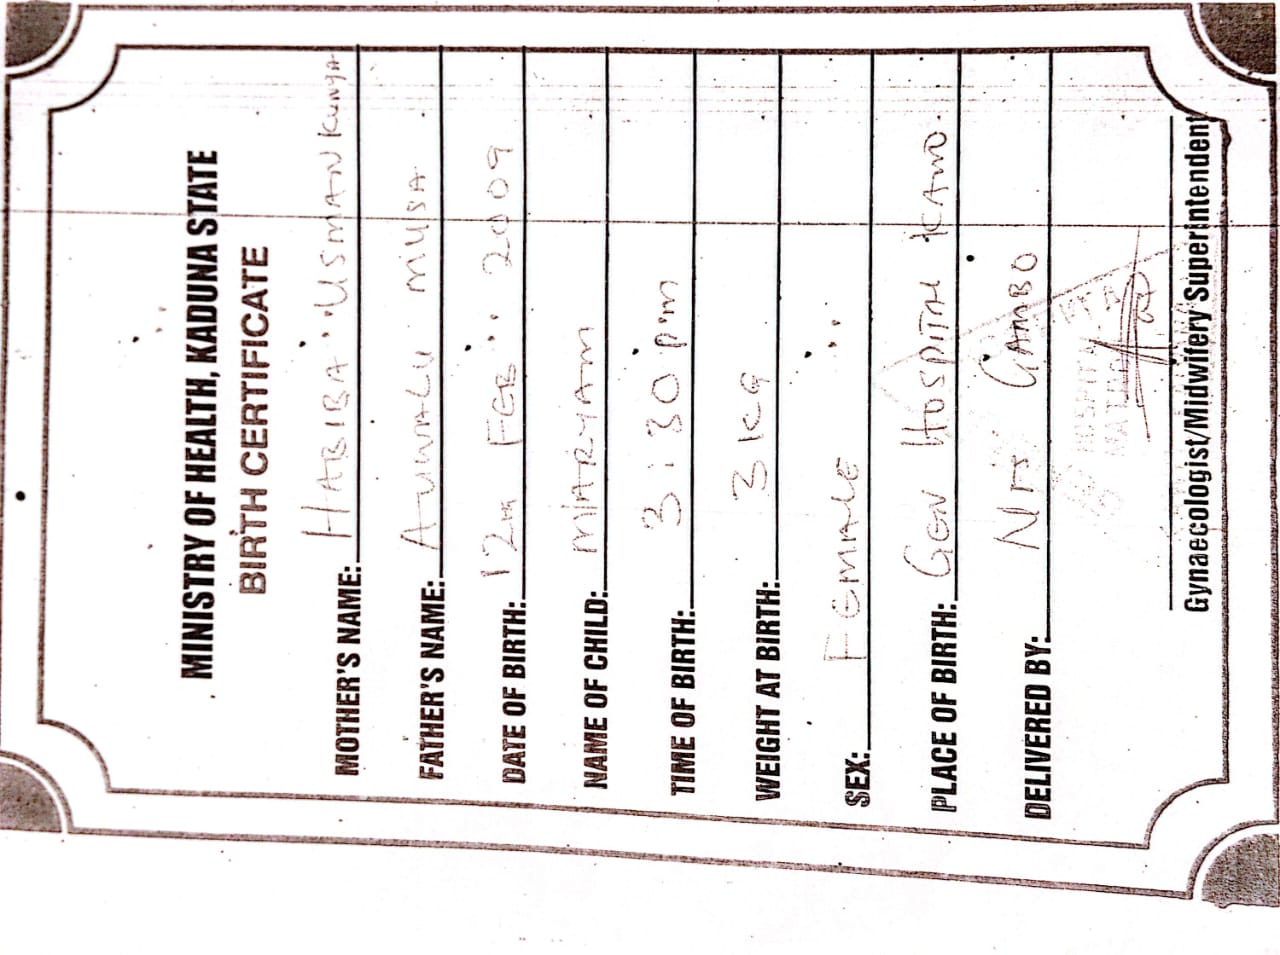 MINISTRY OF HEALTH, KADUNA STATE
BIRTH CERTIFICATE
MOTHER'S NAME: HABIBA USMAN Kunya
FATHER'S NAME: AUWALU MUSA
DATE OF BIRTH: 12th FEB. 2009
NAME OF CHILD: MARYAM
TIME OF BIRTH: 3:30 pm
WEIGHT AT BIRTH: 3 KG
SEX: FEMALE
PLACE OF BIRTH: GEN HOSPITAL KANO
DELIVERED BY: GAMBO
Gynaecologist/Midwifery Superintendent